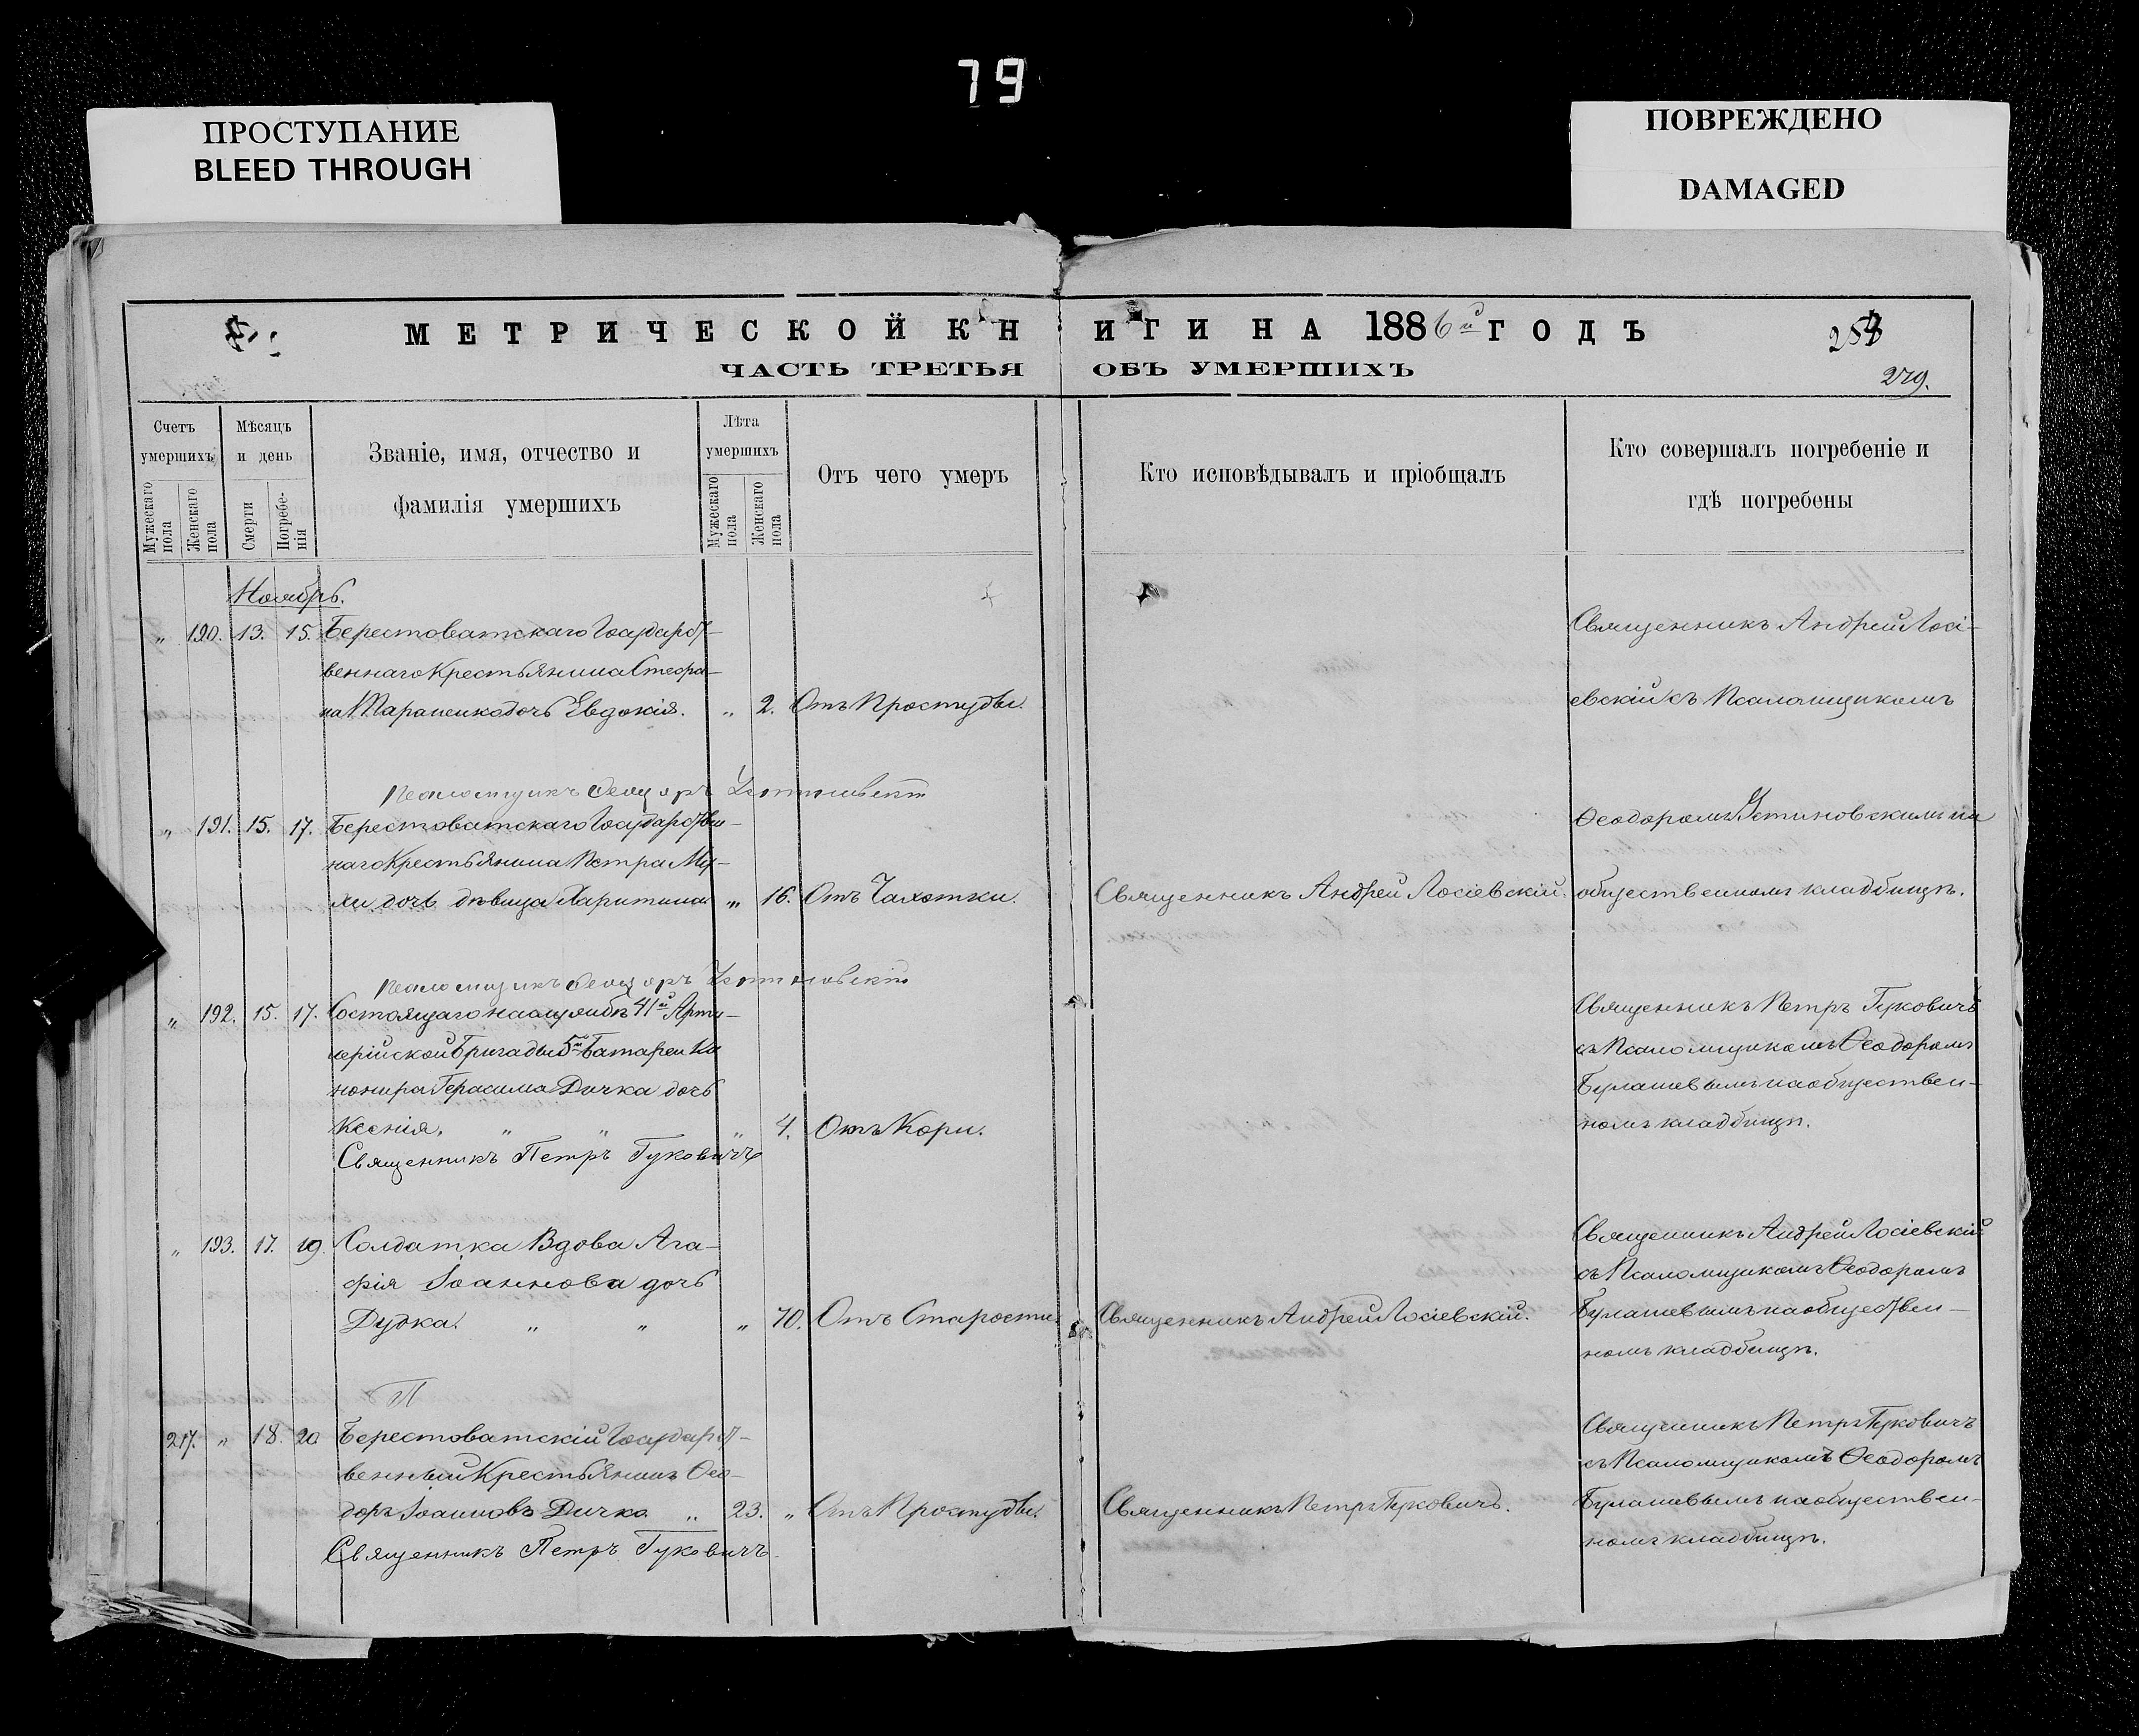 79
ПРОСТУПАНИЕ
BLEED THROUGH
ПОВРЕЖДЕНО
DAMAGED
МЕТРИЧЕСКОЙ КНИГИ НА 1886й ГОДЪ
ЧАСТЬ ТРЕТЬЯ ОБЪ УМЕРШИХЪ
279.
Счетъ умершихъ
Мужескаго пола
Женскаго пола
Мѣсяцъ и день
Смерти
Погребенія
Званіе, имя, отчество и
фамилія умершихъ
Лѣта умершихъ
Мужескаго пола
Женскаго пола
Отъ чего умеръ
Кто исповѣдывалъ и пріобщалъ
Кто совершалъ погребеніе и
гдѣ погребены
Ноябрь.
„ 190. 13. 15. Берестоватскаго Государст-
веннаго Крестьянина Стефа-
на Тараненко дочь Евдокія. „ 2. Отъ Простуды.
Священникъ Андрей Лосі-
евскій съ Псаломщикомъ
Псаломщикъ Феодоръ Устиновскій
„ 191. 15. 17. Берестоватскаго Государствен-
наго Крестьянина Петра Му-
хи дочь дѣвица Харитина „ 16. Отъ Чахотки. Священникъ Андрей Лосіевскій.
Ѳеодоромъ Устиновскимъ на
общественномъ кладбищѣ.
Псаломщикъ Феодоръ Устиновскій
„ 192. 15. 17. Состоящаго на службѣ 41й Арти-
лерійской Бригады 5й Батареи Ка
нонира Герасима Дичка дочь
Ксенія. „ „ „ 4. Отъ Кори.
Священникъ Петръ Гуковичъ
Священникъ Петръ Гуковичъ
съ Псаломщикомъ Ѳеодоромъ
Булашевымъ на обществен-
номъ кладбищѣ.
„ 193. 17. 19. Солдатка Вдова Ага-
фія Іоаннова дочь
Дудка. „ „ „ 70. Отъ Старости. Священникъ Андрей Лосіевскій.
Священникъ Андрей Лосіевскій
съ Псаломщикомъ Ѳеодоромъ
Булашевымъ на обществен-
номъ кладбищѣ.
217. „ 18. 20 Берестоватскій Государст-
венный Крестьянинъ Ѳео-
доръ Іоанновъ Дичко „ 23. „ Отъ Простуды. Священникъ Петръ Гуковичъ.
Священникъ Петръ Гуковичъ
Священникъ Петръ Гуковичъ
съ Псаломщикомъ Ѳеодоромъ
Булашевымъ на обществен-
номъ кладбищѣ.